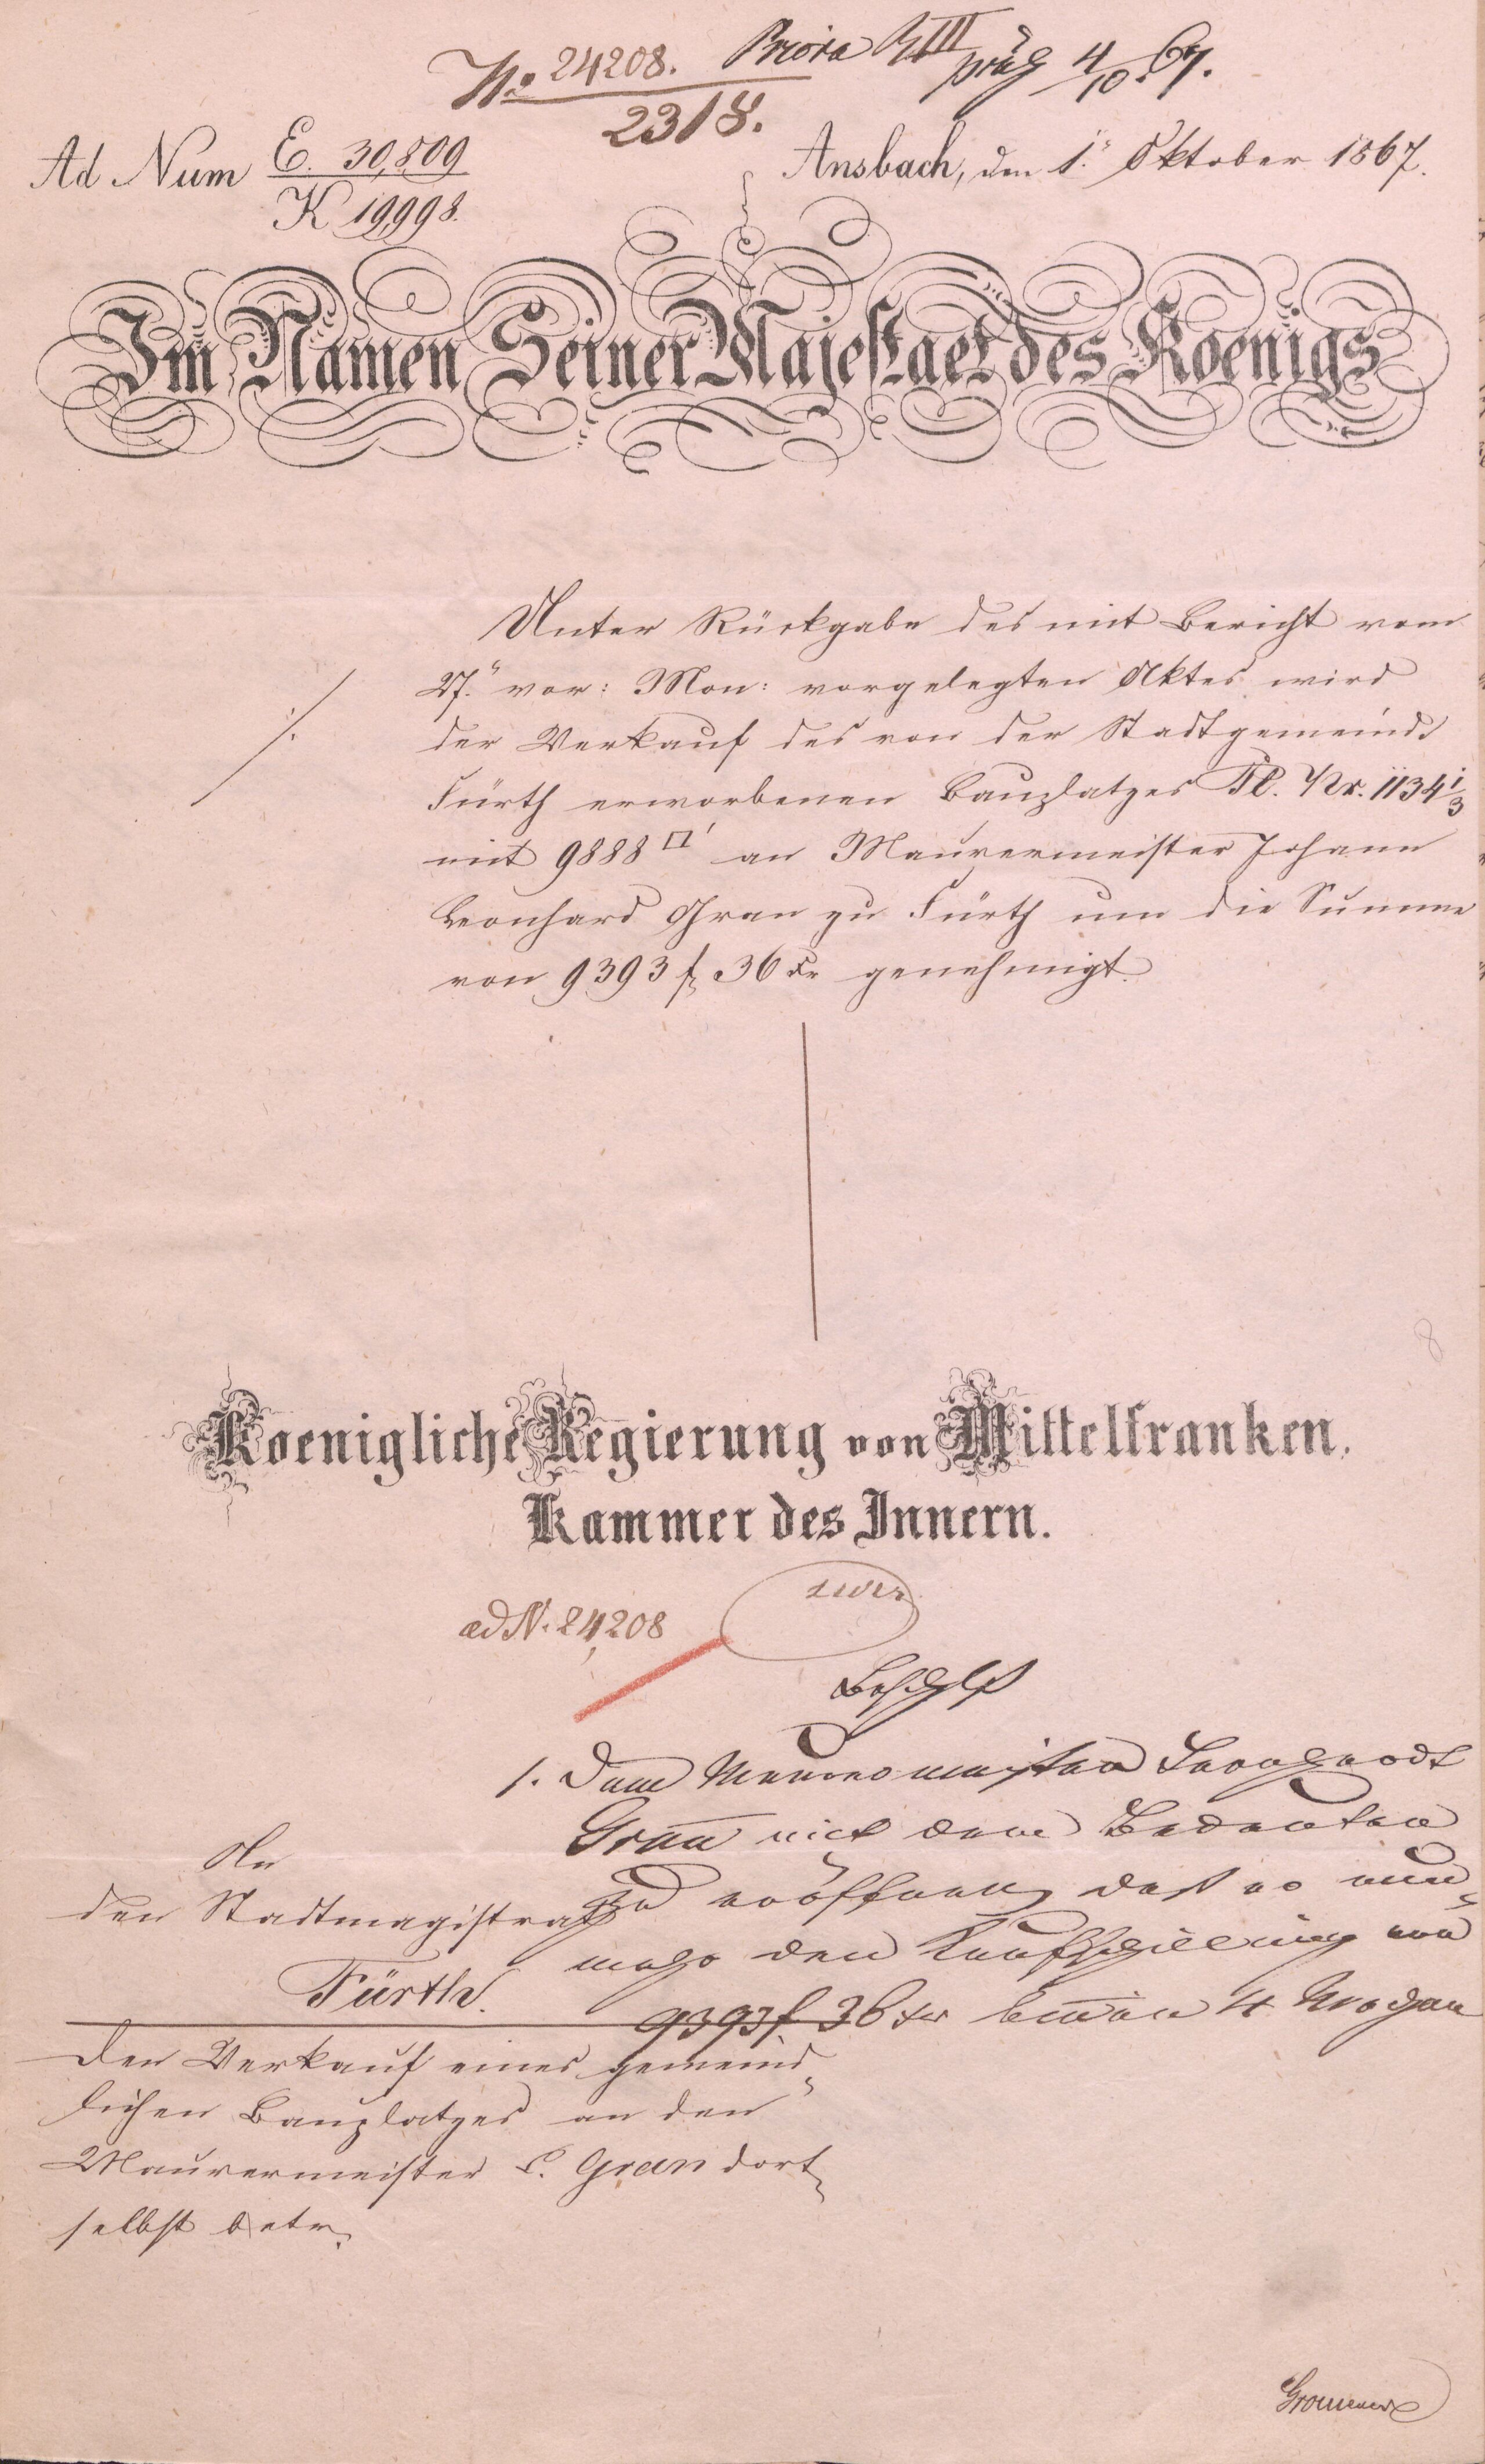 No 24208.
2318.
präs 4/10. 67.
Ad Num E. 30,809
K 19,998.
Ansbach, den 1." Oktober 1867.
Im Namen Seiner Majestaet des Koenigs
Unter Rückgabe des mit Bericht vom
27." vor: Mon: vorgelegten Aktes wird
der Verkauf des von der Stadtgemeinde
Fürth erworbenen Bauplatzes Pl. Nr. 1134 1/3
mit 9888 □' an Maurermeister Johann
Leonhard Gran zu Fürth um die Summe
von 9393 f 36 xr genehmigt.
8
Koenigliche Regierung von Mittelfranken,
Kammer des Innern.
ad N. 24,208
Beschluß
1. Dem Maurermeister Leonhardt
Grau mit dem Bedeuten
zu eröffnen daß er nun„
mehr den Kaufschilling von
9393 f. 36 xr binnen 4 Wochen
An
den Stadtmagistrat
Fürth.
Den Verkauf eines gemeind„
lichen Bauplatzes an den
Maurermeister L. Gran dort„
selbst betr.